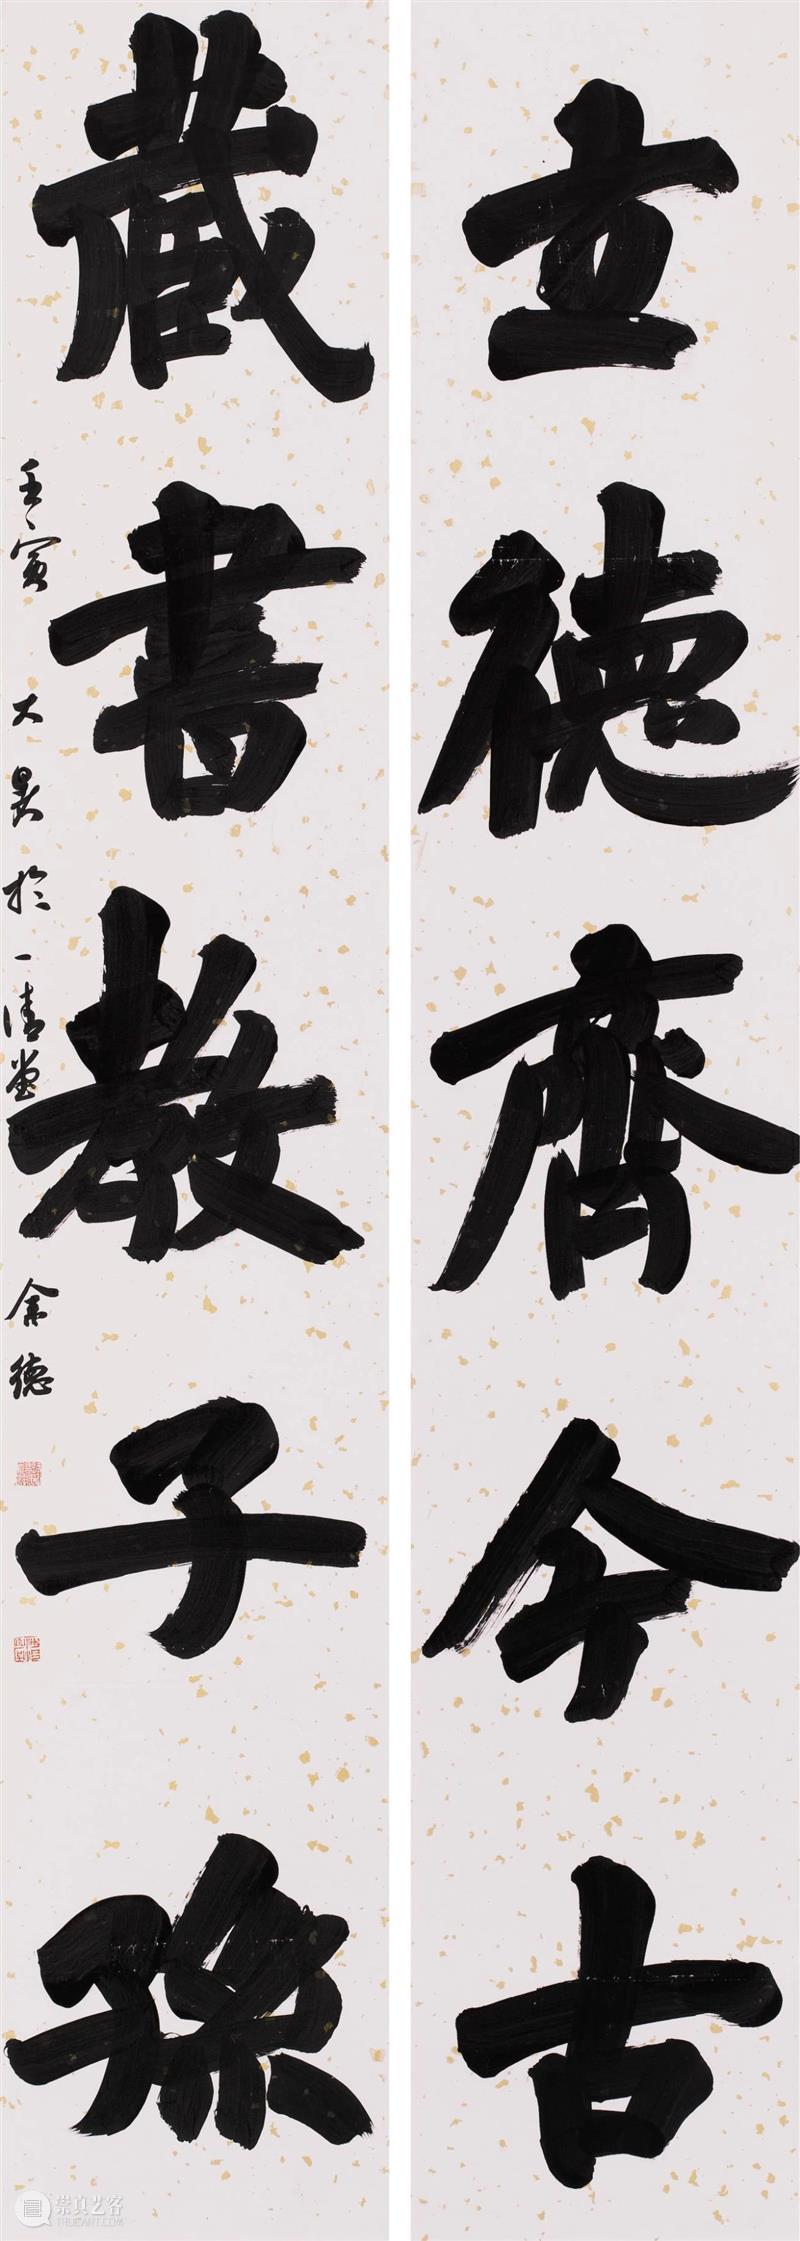 立德齊今古
藏書教子孫
壬寅大暑於一清堂余德
崇真艺客
TRUEART.COM